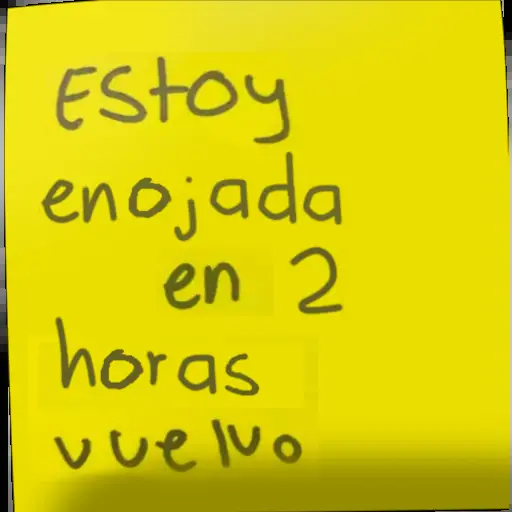 Estoy
enojada
en 2
horas
vuelvo